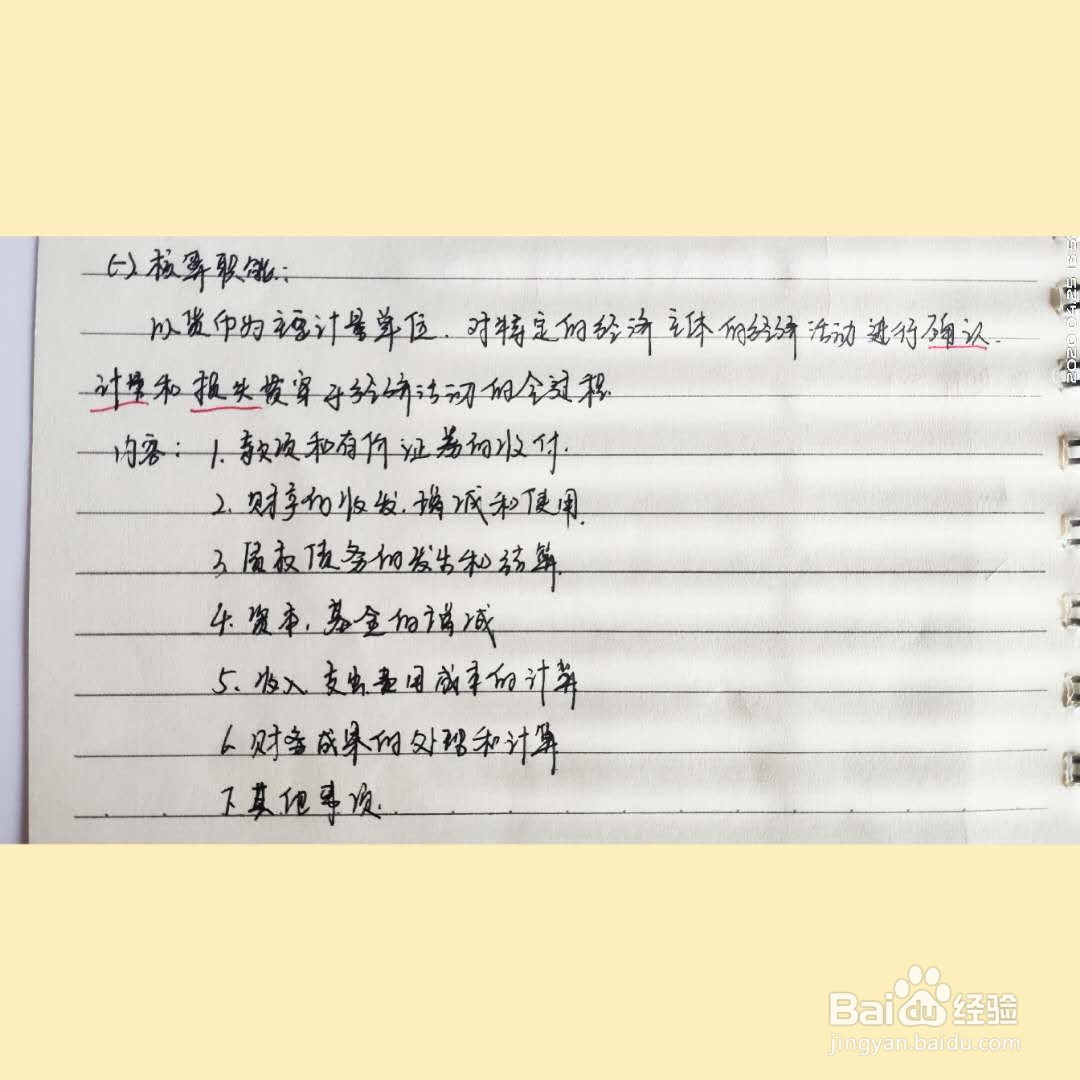 (一)核算职能:
以货币为主要计量单位.对特定的经济主体的经济活动进行确认.
计量和报失贯穿于经济活动的全过程.
内容:1.款项和有价证券的收付.
2.财产的收发.增减和使用.
3.债权债务的发生和结算.
4.资本.基金的增减
5.收入.支出费用成本的计算
6.财务成果的处理和计算
7.其他事项.
Baidu经验
jingyan.baidu.com